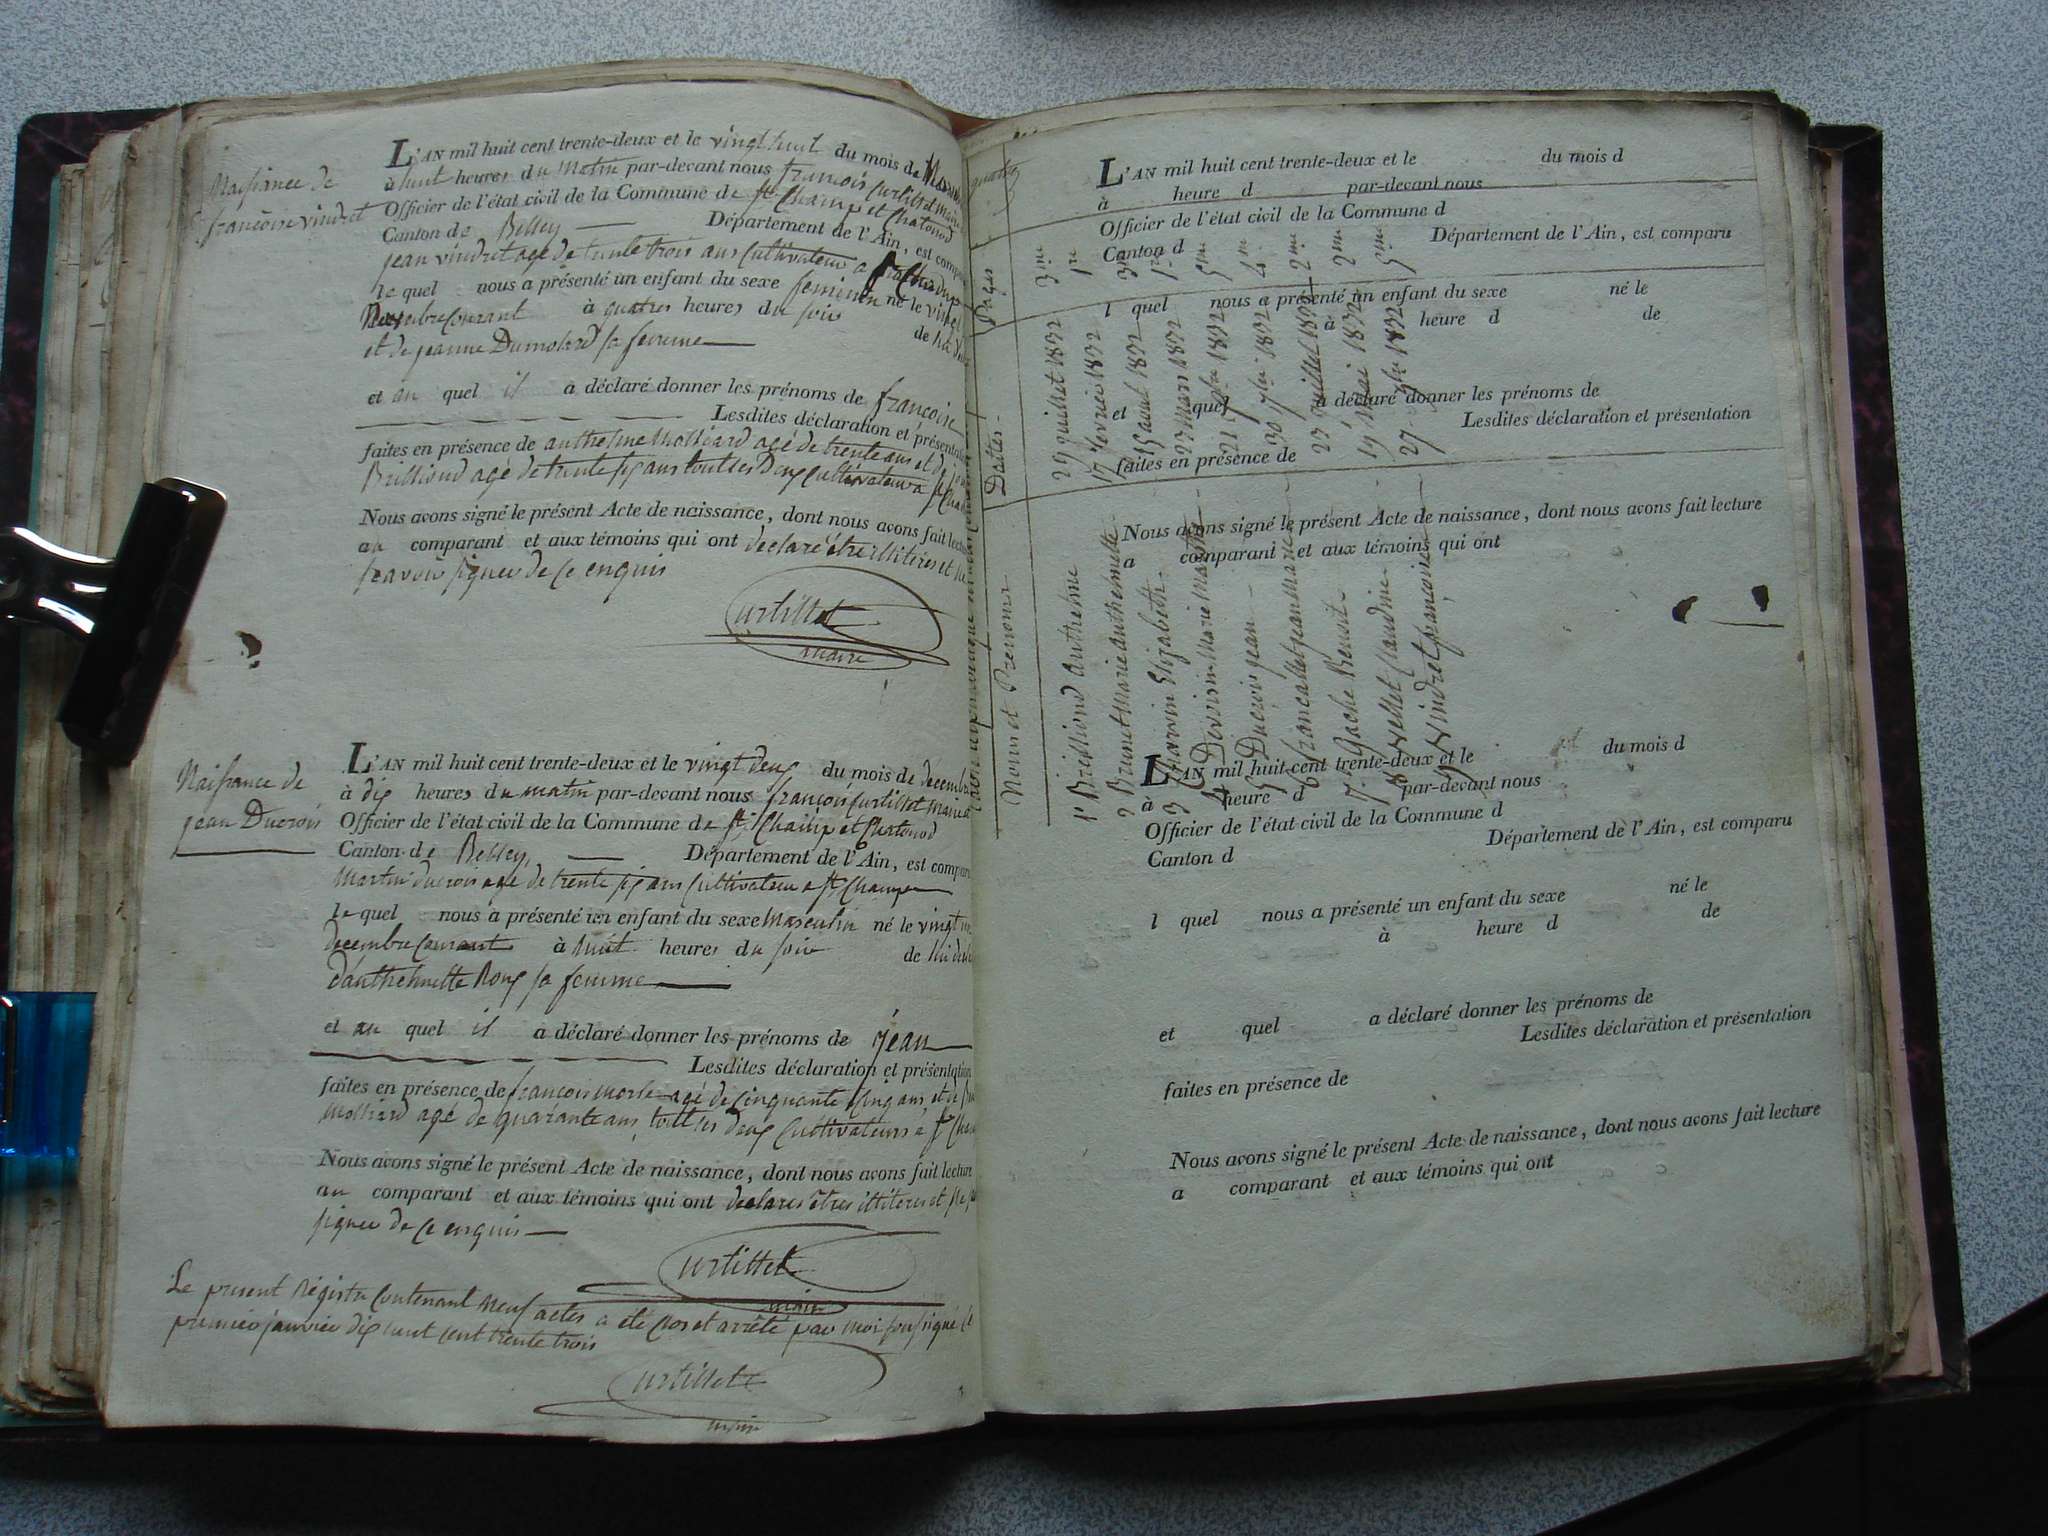 Naissance de
françoise vindret
L'AN mil huit cent trente-deux et le vingt huit du mois de
à huit heures du matin par-devant nous françois Curtillet maire
Officier de l'état civil de la Commune de St Champ et Chatonod
Canton de Belley Département de l'Ain, est comparu
jean vindret agé de trente trois ans Cultivateur a St Champ
le quel nous a présenté un enfant du sexe feminin né le vingt
Novembre Courant à quatres heures du soir de lui
et de jeanne Dumolard sa femme
et au quel il a déclaré donner les prénoms de françoise
Lesdites déclaration et présentation
faites en présence de anthelme Molliard agé de trente ans et de
Brilliond agé de trente six ans tout les Deux Cultivateur a St Champ
Nous avons signé le présent Acte de naissance, dont nous avons fait lecture
au comparant et aux témoins qui ont declaré être illiteres et ne
scavoir signer de Ce enquis
Curtillet
maire
Naissance de
jean Ducrois
L'AN mil huit cent trente-deux et le vingt deux du mois de decembre
à dix heures du matin par-devant nous françois Curtillet Maire
Officier de l'état civil de la Commune de St Champ et Chatonod
Canton de Belley Département de l'Ain, est comparu
Martin ducrois agé de trente six ans Cultivateur a St Champ
le quel nous a présenté un enfant du sexe Masculin né le vingt un
decembre Courant à huit heures du soir de lui
d'anthelmette Roux sa femme
et au quel il a déclaré donner les prénoms de jean
Lesdites déclaration et présentation
faites en présence de françois agé de Cinquante Cinq ans, et de
Molliard agé de quarante ans, tout les deux Cultivateurs a St Champ
Nous avons signé le présent Acte de naissance, dont nous avons fait lecture
au comparant et aux témoins qui ont declarés êtres illiteres et ne
signer de Ce enquis
Curtillet
maire
Le present Régistre Contenant Neuf actes a été Clos et arrêté par moi soussigné le
premier janvier dix huit cent trente trois
Curtillet
maire
Noms et Prenoms Dattes Pages
1 Brilliond anthelme 29 juillet 1832 3me
2 Brunet Marie anthelmette 17 fevrier 1832 1re
3 Charvin Elizabeth 15 aout 1832 3me
4 Marie 23 Mars 1832 1re
5 Ducrois jean 21 1832 5me
6 francallet jean Marie 30 7bre 1832 4me
7 Gache Benoit 23 juillet 1832 2me
8 Claudine 19 Mai 1832 2me
9 Vindret françoise 27 9bre 1832 5me
L'AN mil huit cent trente-deux et le du mois d
à heure d par-devant nous
Officier de l'état civil de la Commune d
Canton d Département de l'Ain, est comparu
l quel nous a présenté un enfant du sexe né le
à heure d de
et quel a déclaré donner les prénoms de
Lesdites déclaration et présentation
faites en présence de
Nous avons signé le présent Acte de naissance, dont nous avons fait lecture
a comparant et aux témoins qui ont
L'AN mil huit cent trente-deux et le du mois d
à heure d par-devant nous
Officier de l'état civil de la Commune d
Canton d Département de l'Ain, est comparu
l quel nous a présenté un enfant du sexe né le
à heure d de
et quel a déclaré donner les prénoms de
Lesdites déclaration et présentation
faites en présence de
Nous avons signé le présent Acte de naissance, dont nous avons fait lecture
a comparant et aux témoins qui ont